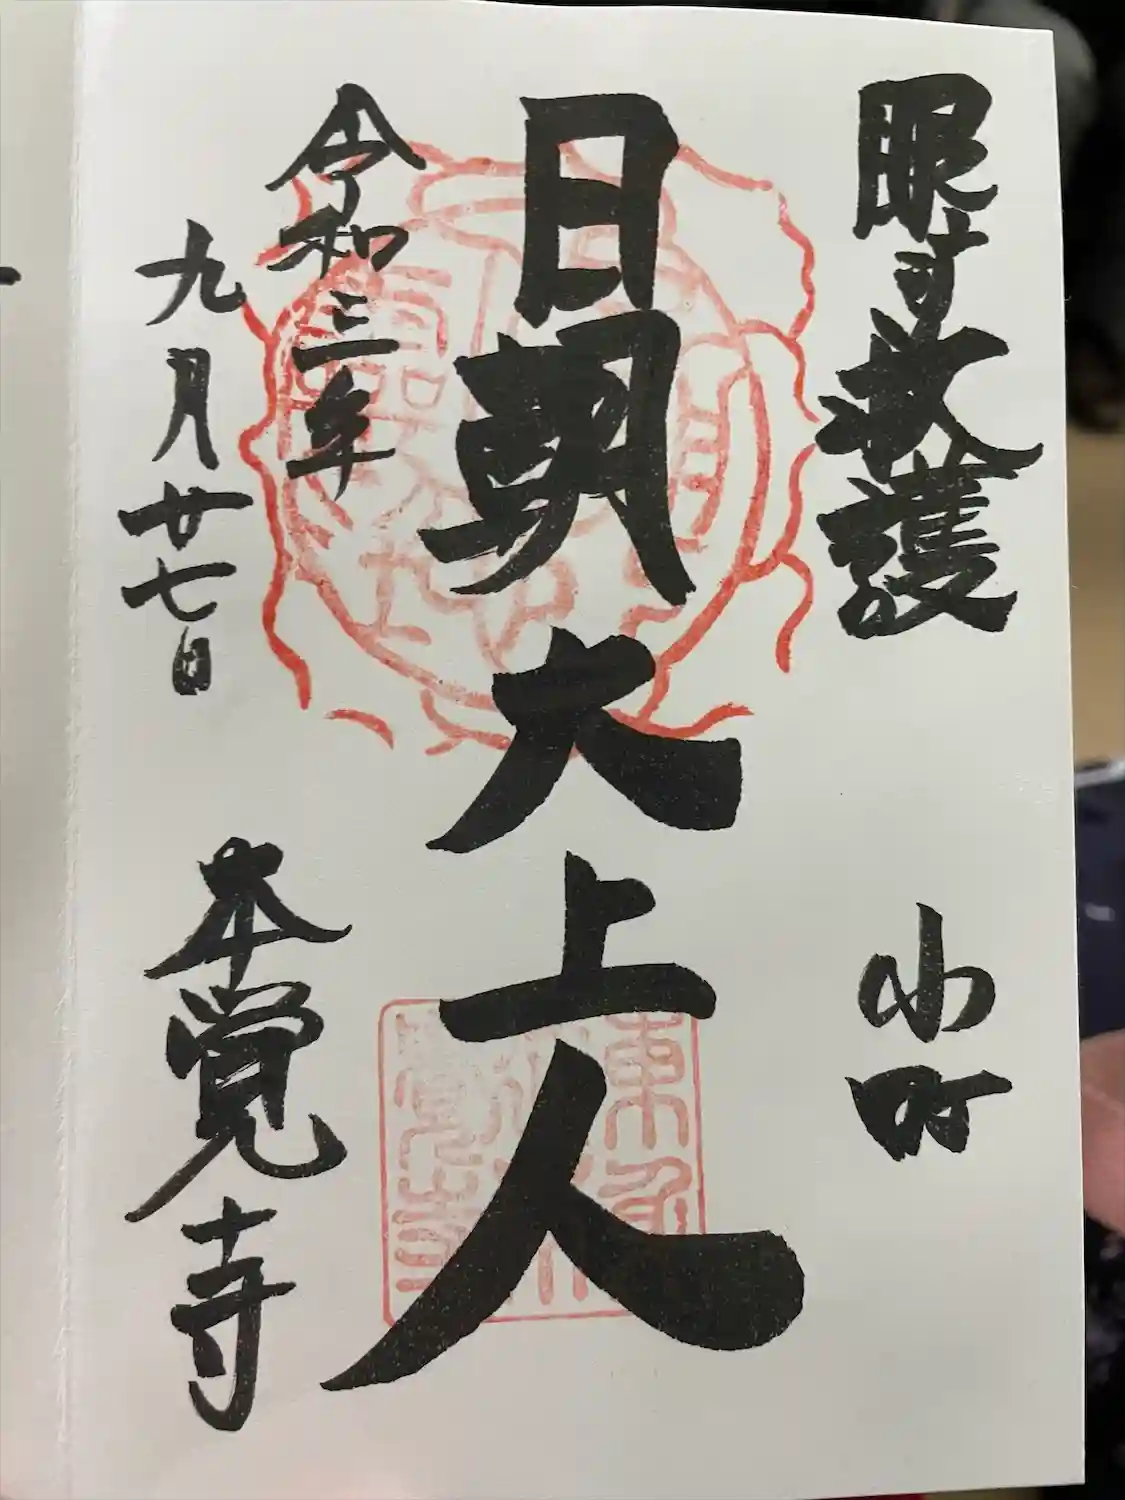 眼守救護
小町
日朝大上人
令和三年
九月廿七日
本覚寺